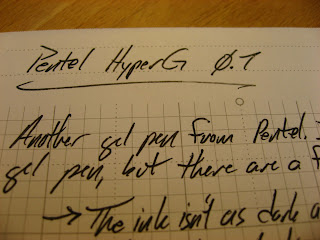 Pentel HyperG 0.7
Another gel pen from Pentel.
gel pen, but there are a
→ The ink isn't as dark